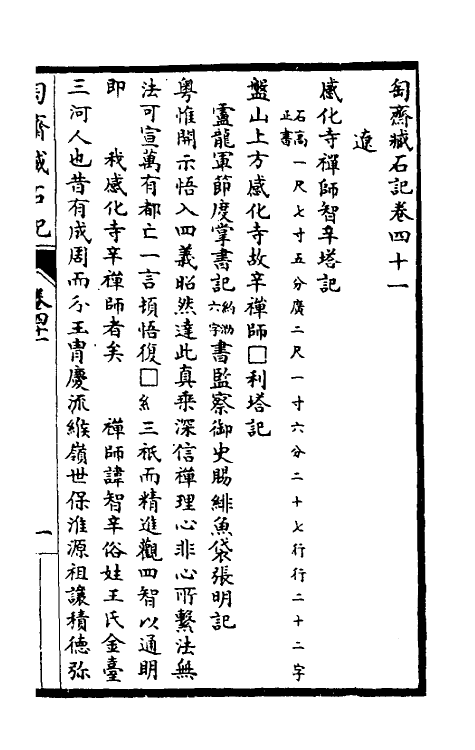 匋齋臧石記卷四十一
遼
感化寺禪師智辛塔記
石高一尺七寸五分廣二尺一寸六分二十七行行二十二字
正書
盤山上方感化寺故辛禪師□利塔記
盧龍軍節度掌書記約泐六字書監察御史賜緋魚袋張明記
粵惟開示悟入四義昭然達此真乘深信禪理心非心所繫法無
法可宣萬有都亡一言頓悟復□糹三祇而精進觀四智以通明
即 我感化寺辛禪師者矣 禪師諱智辛俗姓王氏金臺
三河人也昔有成周而分王胄慶派緱嶺世保淮源祖讓積德弥
匋齋臧石記
卷四十一
一